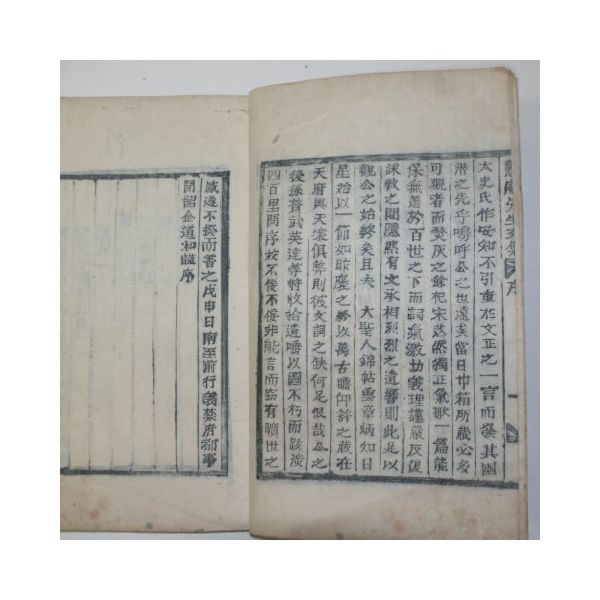 先生文集序
太史氏作安知不引重於文正之一言而發其幽
潛之先乎嗚呼公之世遠矣當日巾箱所藏必多
可觀者而焚灰之餘杞宋蕩然獨正氣歌一篇能
保無恙於百世之下而詞氣激切義理謹嚴反復
詠歎之間隱然有文承相烈烈之遺響則此足以
觀公之始終矣且夫大聖人錦帖雲章病知日
星始以一節如晬慶之終以萬古瞻仰許之蔵在
天府與天壤俱弊則彼文詞之缺何足恨哉公之
後孫賛武英達孝特收拾遺唾以圖不朽而跋涉
四百里問序於不佞不佞非能言而窃有曠世之
感遂不揆而書之戊申日南至前行義禁府都事
聞韶金道和謹序